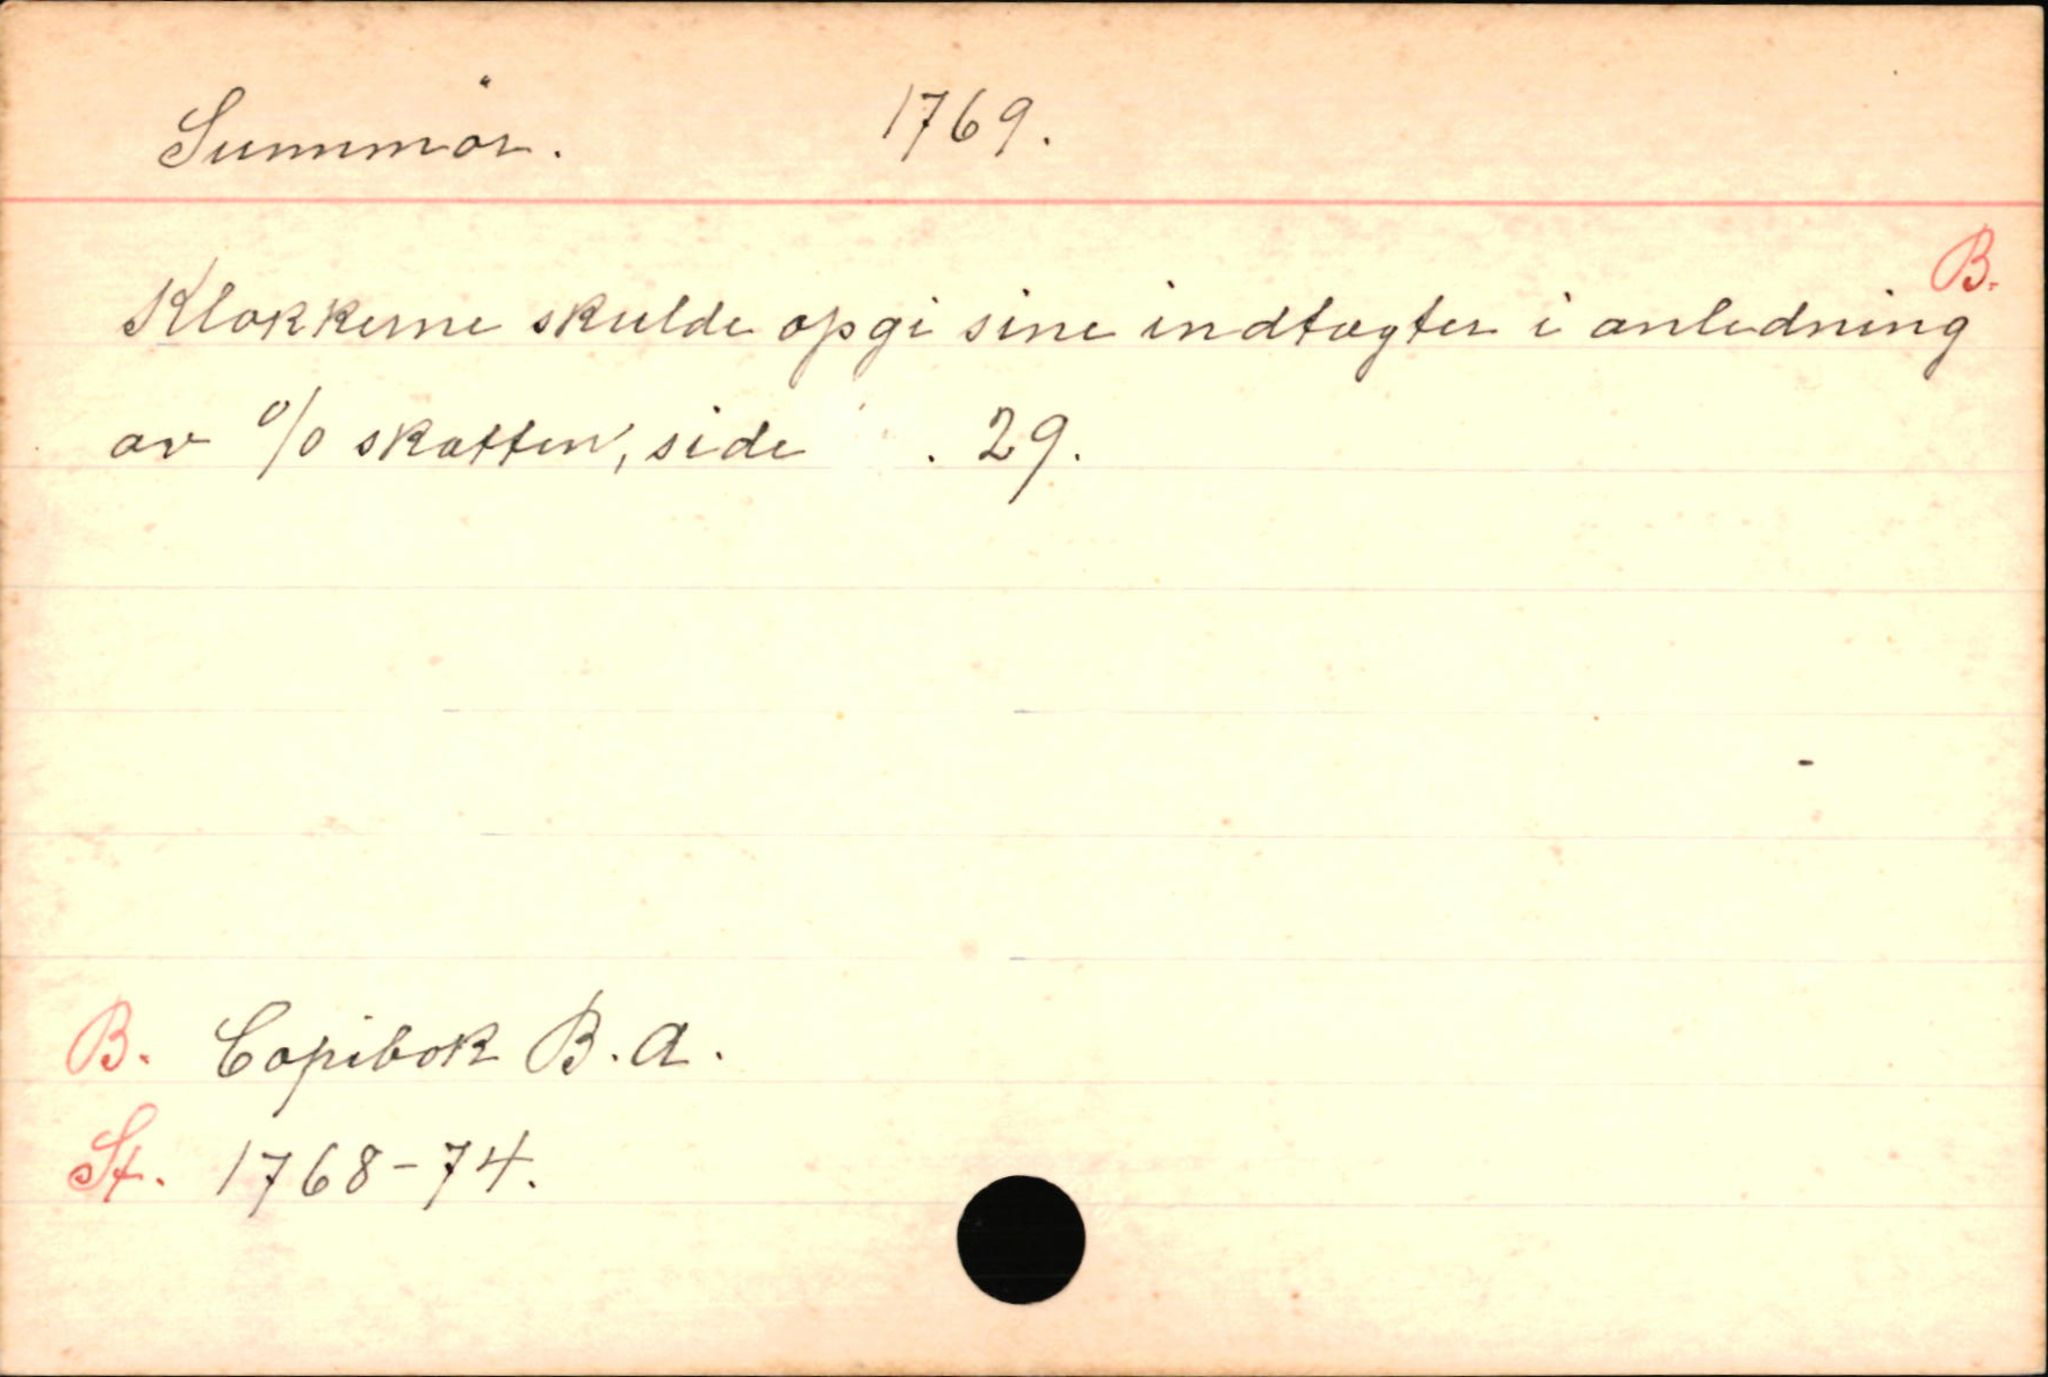 Sunnmör. 1769.
B.
Klokkerne skulde opgi sine indtægter i anledning
av % skatten, side . 29.
B. Copibok B. A.
St. 1768-74.